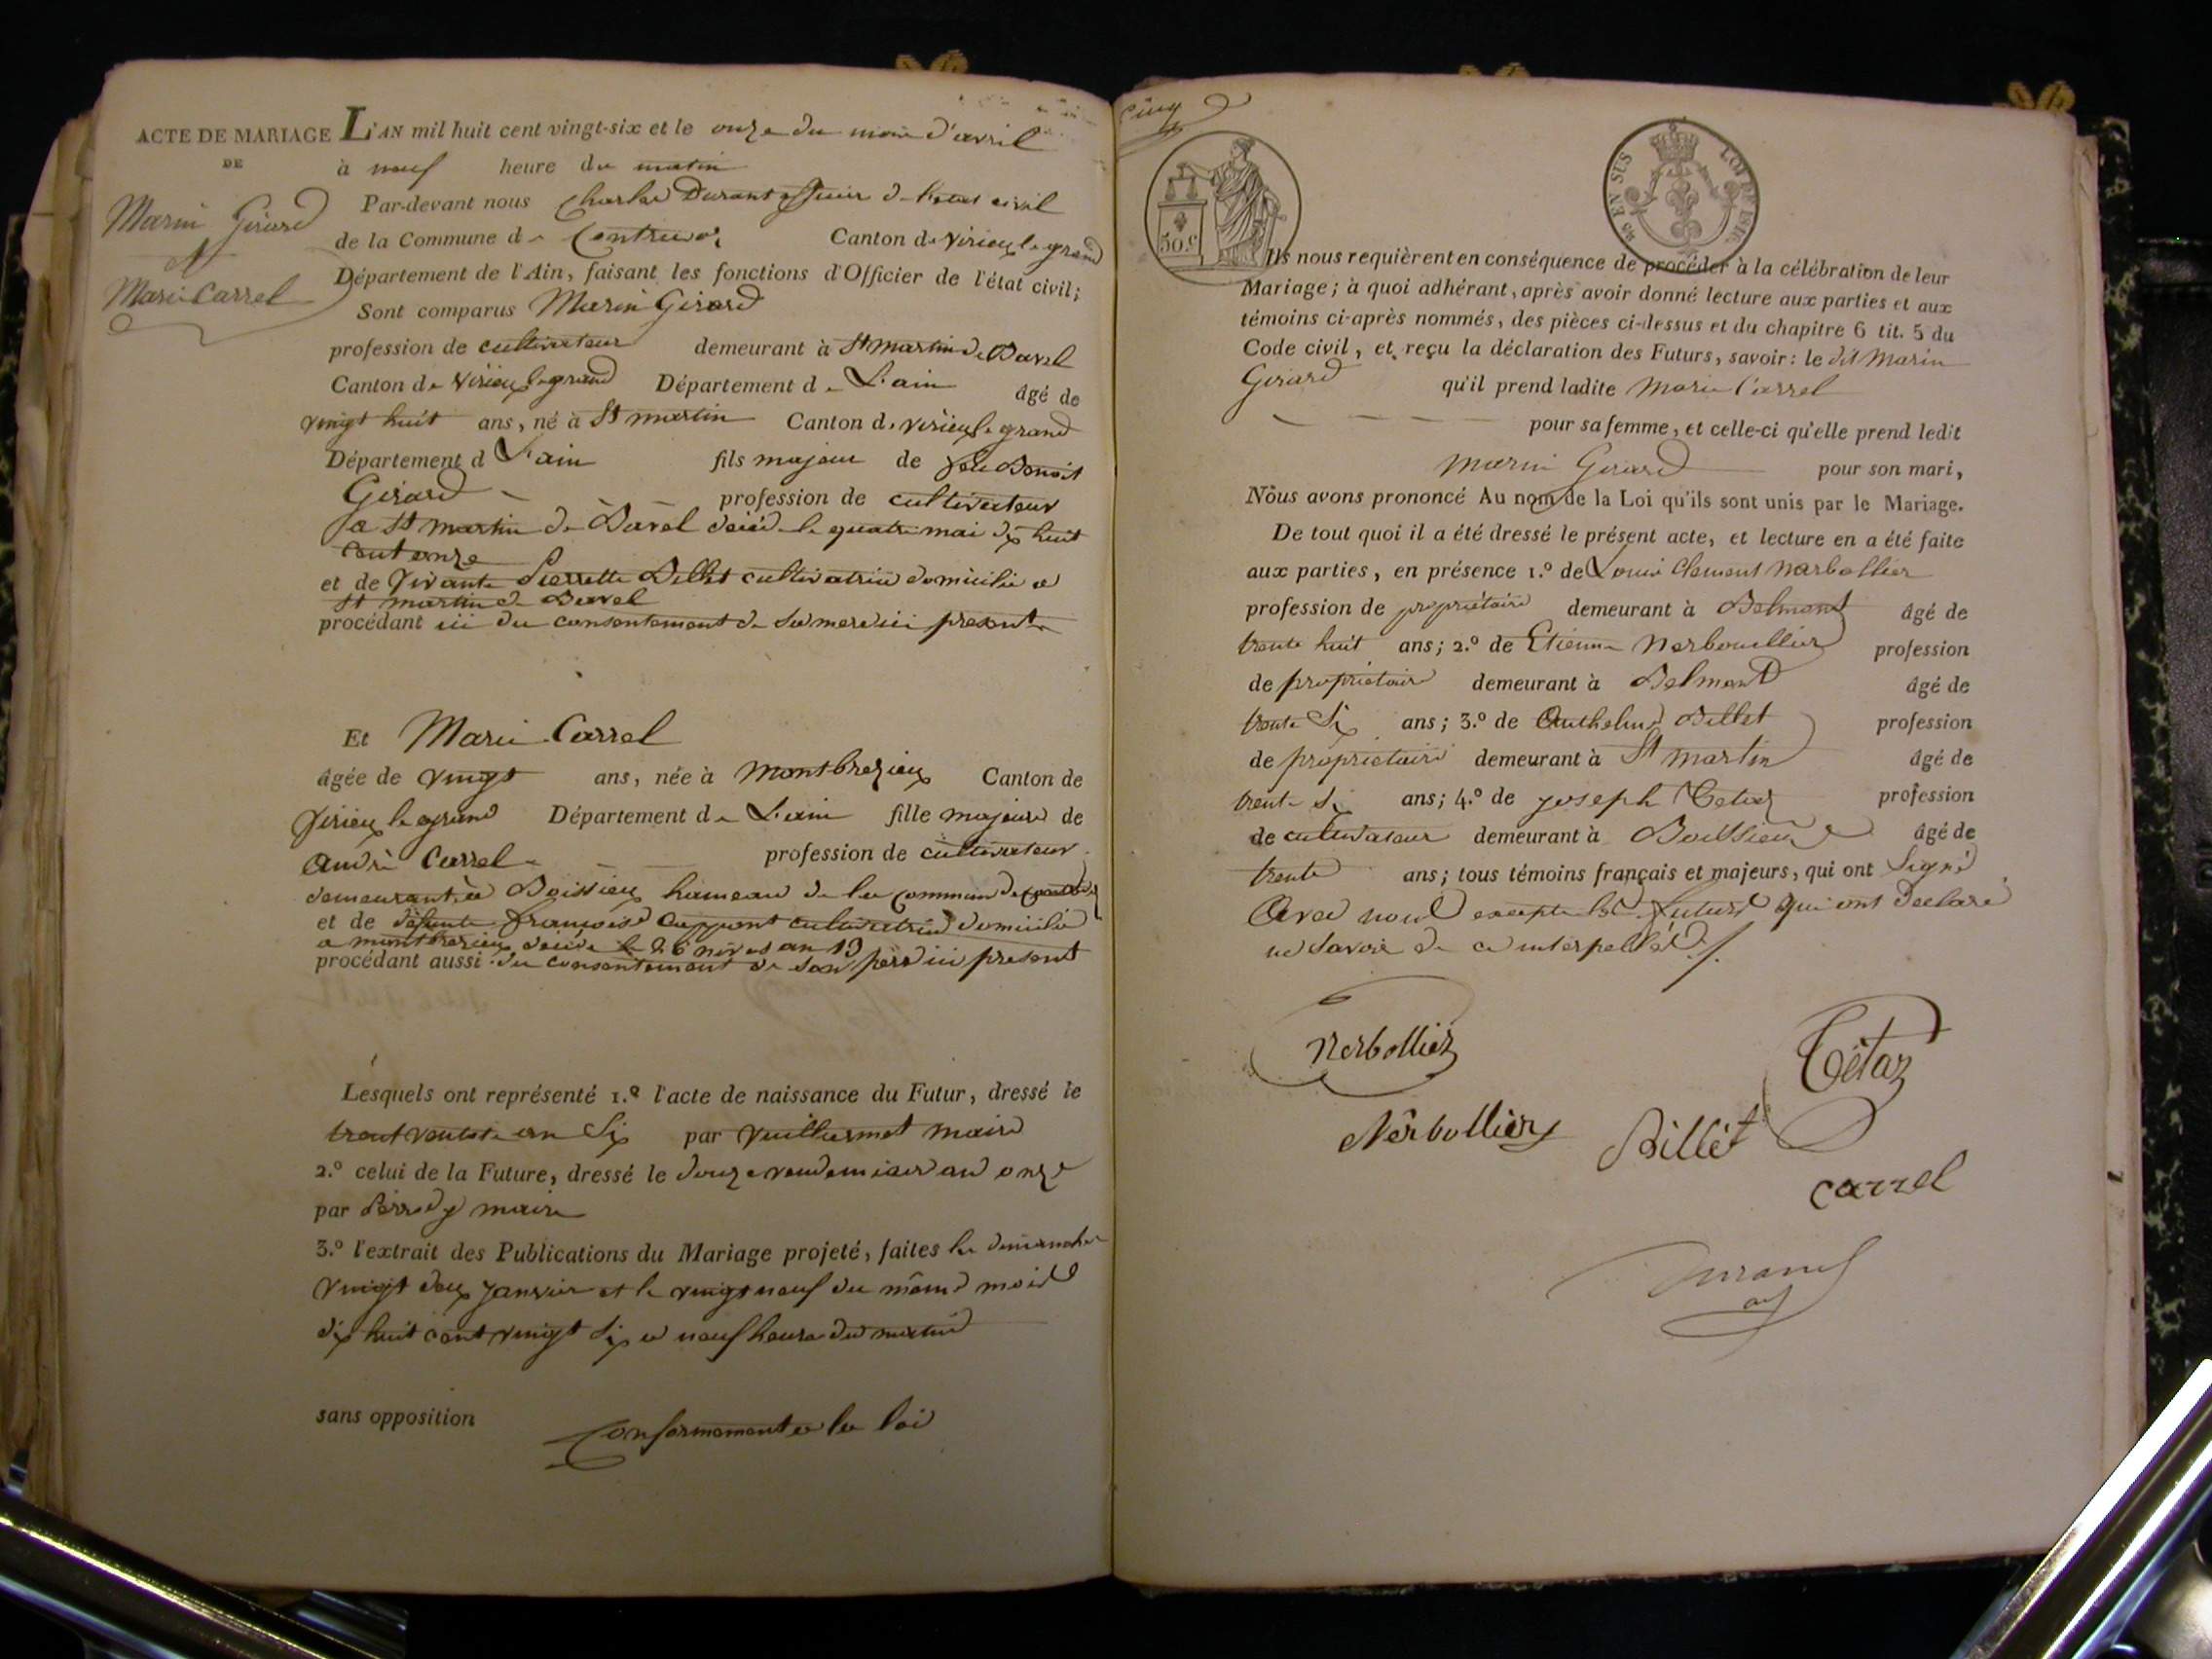 ACTE DE MARIAGE
DE
Marin Girard
et
Marie Carrel
L'AN mil huit cent vingt-six et le onze du mois d'avril
à neuf heure du matin
Par-devant nous Charles Durant officier de l'état civil
de la Commune de Contrevoz Canton de virieu le grand
Département de l'Ain, faisant les fonctions d'Officier de l'état civil;
Sont comparus Marin Girard
profession de cultivateur demeurant à St martin de Bavel
Canton de Virieu le grand Département de L'ain âgé de
vingt huit ans, né à St martin Canton de virieu le grand
Département d L'ain fils majeur de feu Benoit
Girard profession de cultivateur
a St martin de Bavel décédé le quatre mai dix huit
cent onze
et de vivante Pierrette Billet cultivatrice domicilié a
St martin de Bavel
procédant ici du consentement de sa mere ici presente
Et Marie Carrel
âgée de vingt ans, née à Montbrezieu Canton de
Virieu le grand Département de L'ain fille majeure de
André Carrel profession de cultivateur
demeurant à Boissieu hameau de la commune de
et de défunte françoise cultivatrice domicilié
a montbrezieu décédé le 26 nivos an 13
procédant aussi du consentement de son pere ici present
Lesquels ont représenté 1.º l'acte de naissance du Futur, dressé le
trent ventose an Six par Vuillermet maire
2.º celui de la Future, dressé le douze vendemiaire an onze
par Perrody maire
3.º l'extrait des Publications du Mariage projeté, faites les dimanche
vingt deux janvier et le vingt neuf du même mois
dix huit cent vingt six a neuf heures du matin
sans opposition
Conformement a la loi
cinq
50.c
EN SUS
LOI DE 1816
Ils nous requièrent en conséquence de procéder à la célébration de leur
Mariage; à quoi adhérant, après avoir donné lecture aux parties et aux
témoins ci-après nommés, des pièces ci-dessus et du chapitre 6 tit. 5 du
Code civil, et reçu la déclaration des Futurs, savoir: le dit Marin
Girard qu'il prend ladite Marie Carrel
pour sa femme, et celle-ci qu'elle prend ledit
Marin Girard pour son mari,
Nous avons prononcé Au nom de la Loi qu'ils sont unis par le Mariage.
De tout quoi il a été dressé le présent acte, et lecture en a été faite
aux parties, en présence 1.º de Louis Clement Narbollier
profession de propriétaire demeurant à Belmont âgé de
trente huit ans; 2.º de Etienne Nerboullier profession
de propriétaire demeurant à Belmont âgé de
trente Six ans; 3.º de Anthelme Billet profession
de propriétaire demeurant à St martin âgé de
trente Six ans; 4.º de joseph Tetaz profession
de cultivateur demeurant à Boissieu âgé de
trente ans; tous témoins français et majeurs, qui ont Signé
Avec nous excepté les futurs qui ont déclaré
ne savoir de ce interpellés ./.
Nerbollier
Tétaz
Nérbollier
Billét
carrel
Durand